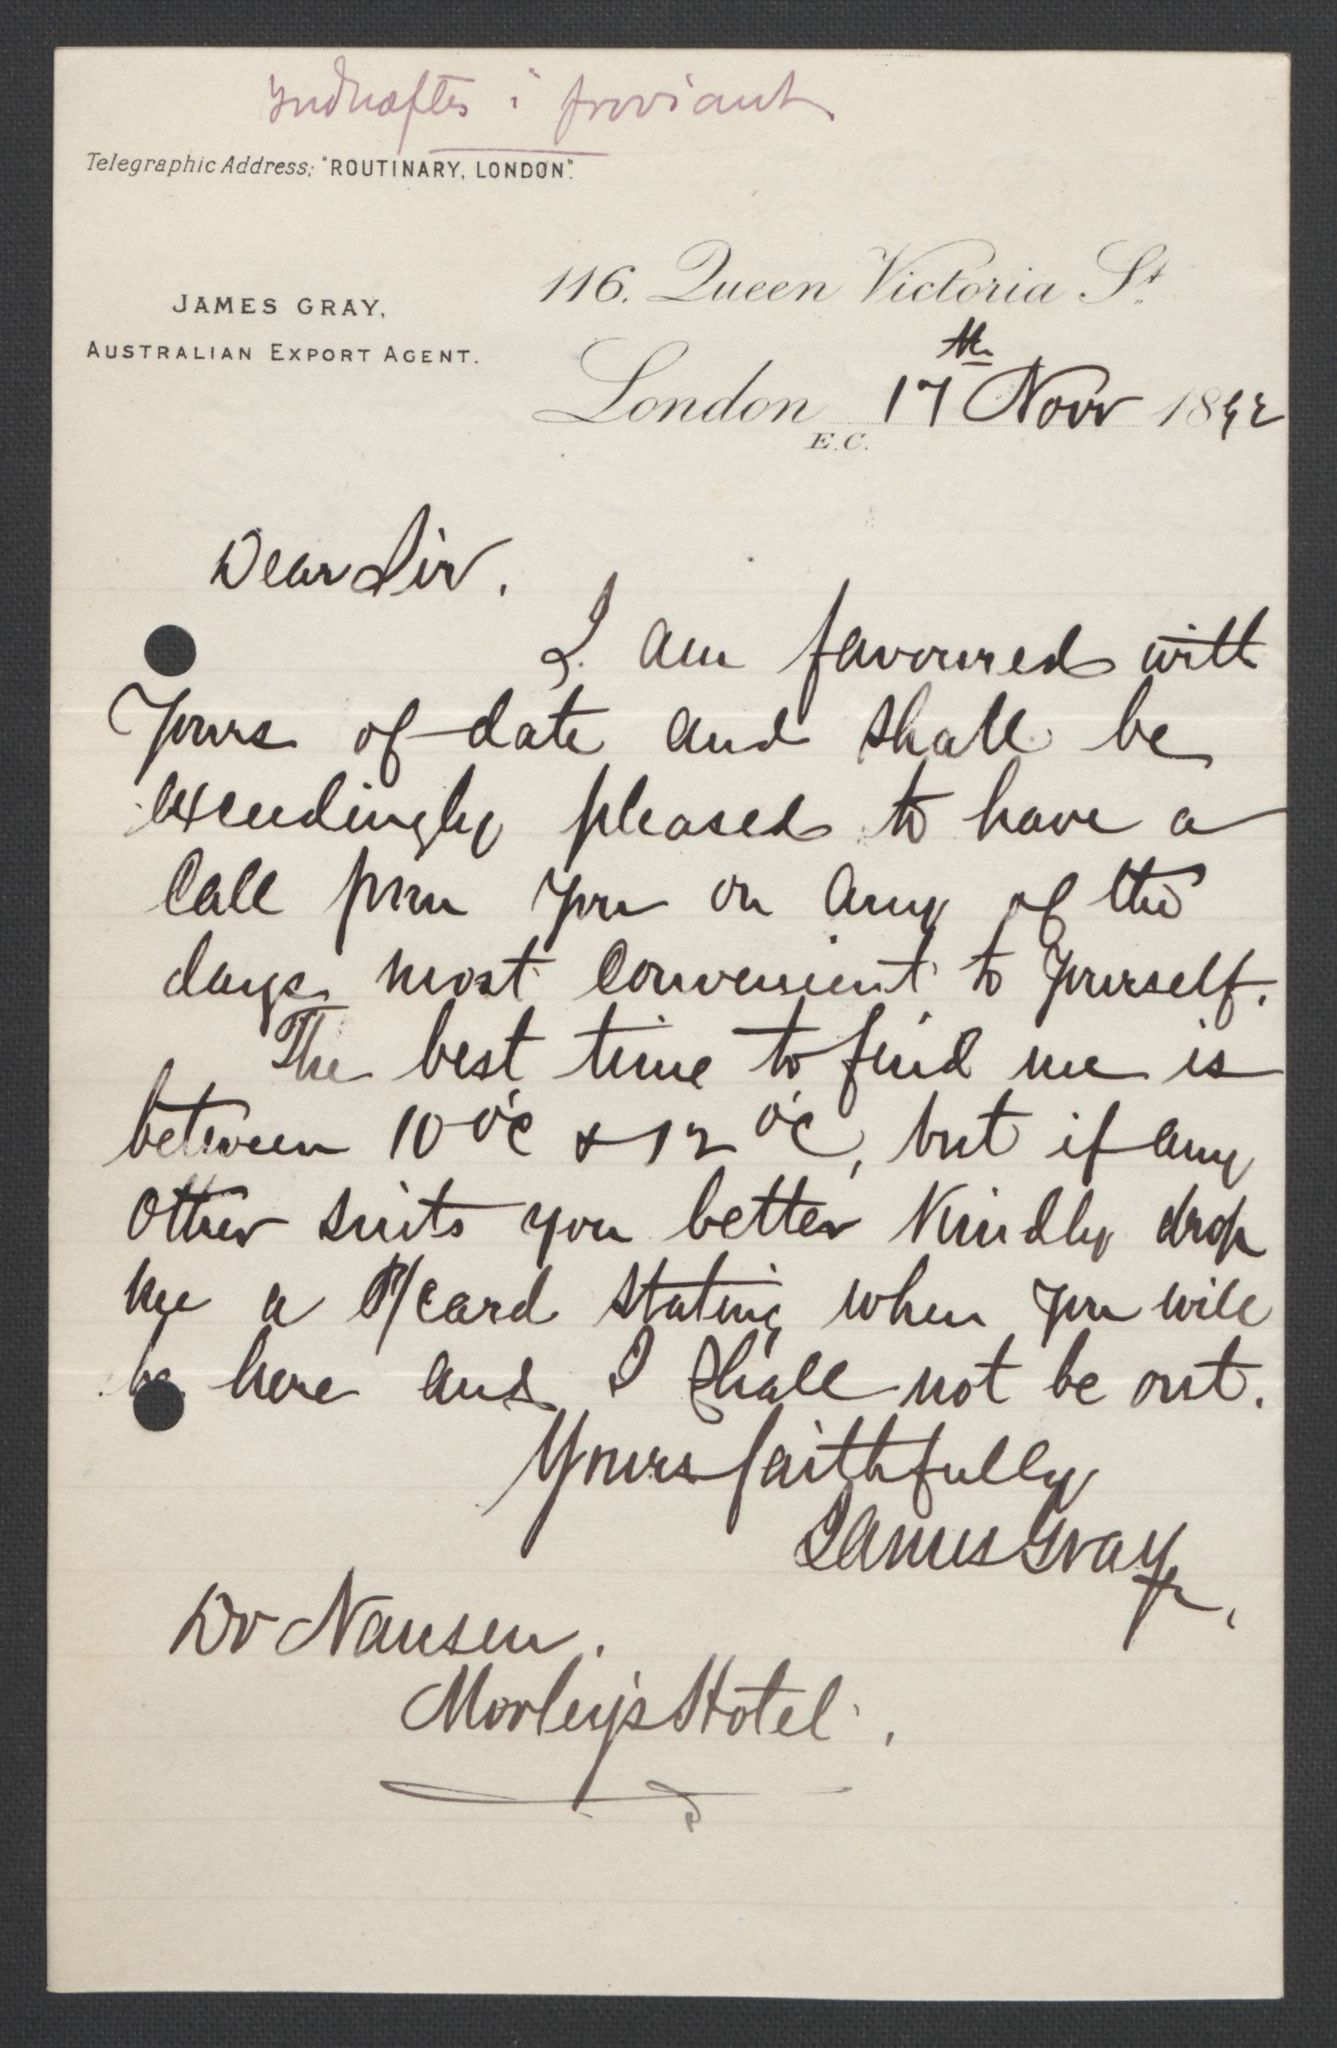 Indhæftes i proviant
Telegraphic Address: "ROUTINARY, LONDON".
116. Queen Victoria St.
JAMES GRAY,
AUSTRALIAN EXPORT AGENT.
London 17th Novr 1892
E.C.
Dear Sir.
I am favoured with
Yours of date and shall be
exceedingly pleased to have a
Call from You on any of the
days most Convenient to Yourself.
The best time to find me is
between 10 o'c & 12 o'c, but if any
Other suits you better Kindly drop
me a P/Card Stating when You will
be here and I shall not be out.
Yours faithfully
James Gray
Dr Nansen.
Morley's Hotel.